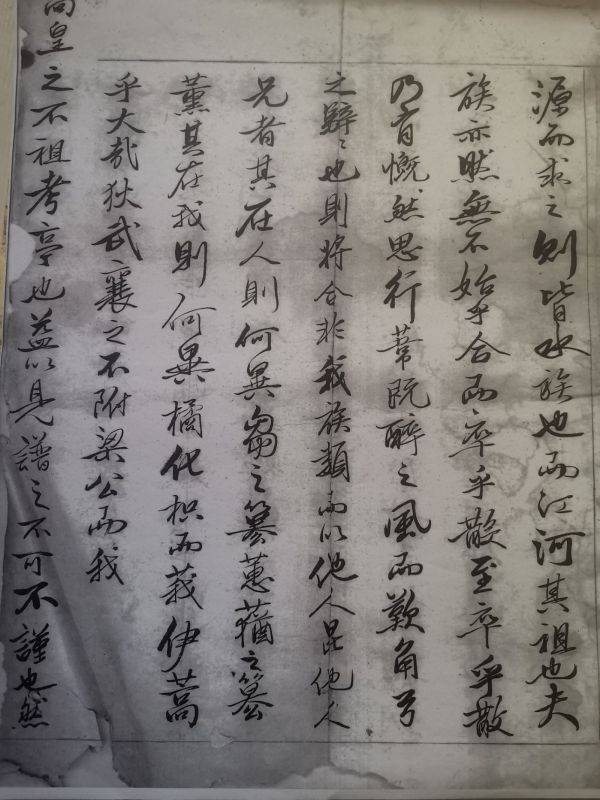 源而求之則皆水族也而江河其祖也夫
族亦然無不始乎合而卒乎散至卒乎散
乃有慨然思行葦既醉之風而歎角弓
之騂〻也則將合非我族類而以他人昆他人
兄者其在人則何異蒭之纂蕙蕕之纂
薰其在我則何異橘化枳而莪伊蒿
乎大哉狄武襄之不附梁公而我
高皇之不祖考亭也益以見譜之不可不謹也然